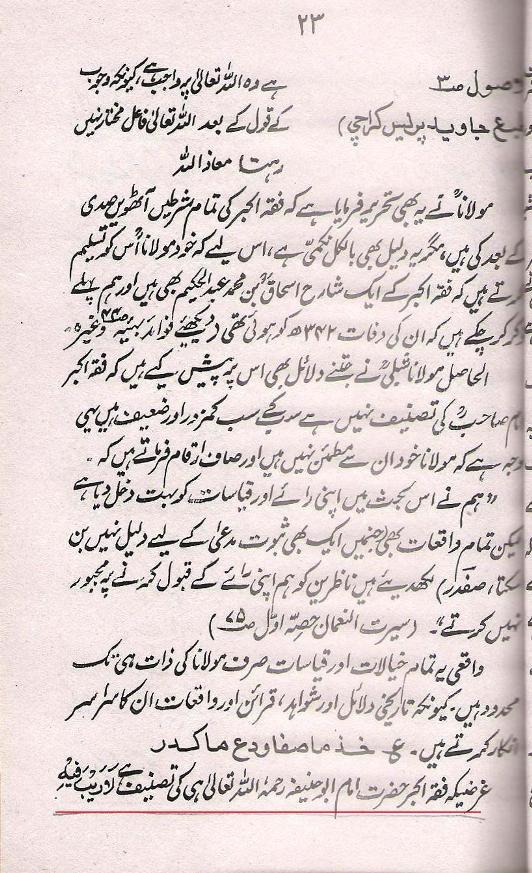 ۲۳
وصول صـ۳ ہے وہ اللہ تعالیٰ پر واجب ہے، کیونکہ وجوب
طبع جاوید پریس کراچی) کے قول کے بعد اللہ تعالیٰ فاعل مختار نہیں
رہتا معاذ اللہ
مولاناؒ نے یہ بھی تحریر فرمایا ہے کہ فقہ اکبر کی تمام شرطیں آٹھویں صدی
کے بعد کی ہیں، مگر یہ دلیل بھی بالکل نکمی ہے، اس لیے کہ خود مولانا اس کو تسلیم
کرتے ہیں کہ فقہ اکبر کے ایک شارح اسحاقؒ بن محمد عبدالحکیم بھی ہیں اور ہم پہلے
ذکر کر چکے ہیں کہ ان کی وفات ۳۴۲ھ کو ہوئی تھی دیکھئے فوائد بہیئہ صـ۴۴ وغیرہ
الحاصل مولانا شبلیؒ نے جتنے دلائل بھی اس پر پیش کیے ہیں کہ فقہ اکبر
امام صاحبؒ کی تصنیف نہیں ہے سو کے سب کمزور اور ضعیف ہیں یہی
وجہ ہے کہ مولانا خود ان سے مطمئن نہیں ہیں اور صاف ارقام فرماتے ہیں کہ۔
”ہم نے اس بحث میں اپنی رائے اور قیاسات کو بہت دخل دیا ہے
لیکن تمام واقعات بھی (جنمیں ایک بھی ثبوت مدعیٰ کے لیے دلیل نہیں بن
سکتا، صفدر) لکھ دیے ہیں ناظرین کو ہم اپنی رائے کے قبول کرنے پہ مجبور
نہیں کرتے“۔ (سیرت النعمان حصہ اوّل صـ۷۵)
واقعی یہ تمام خیالات اور قیاسات صرف مولانا کی ذات ہی تک
محدود ہیں۔ کیونکہ تاریخی دلائل اور شواہد، قرائن اور واقعات ان کا سراسر
انکار کرتے ہیں۔ ع خذ ما صفا ودع ما کدر
غرضیکہ فقہ اکبر حضرت امام ابوحنیفہ رحمہٗ اللہ تعالیٰ ہی کی تصنیف ہے لاریب فیہ